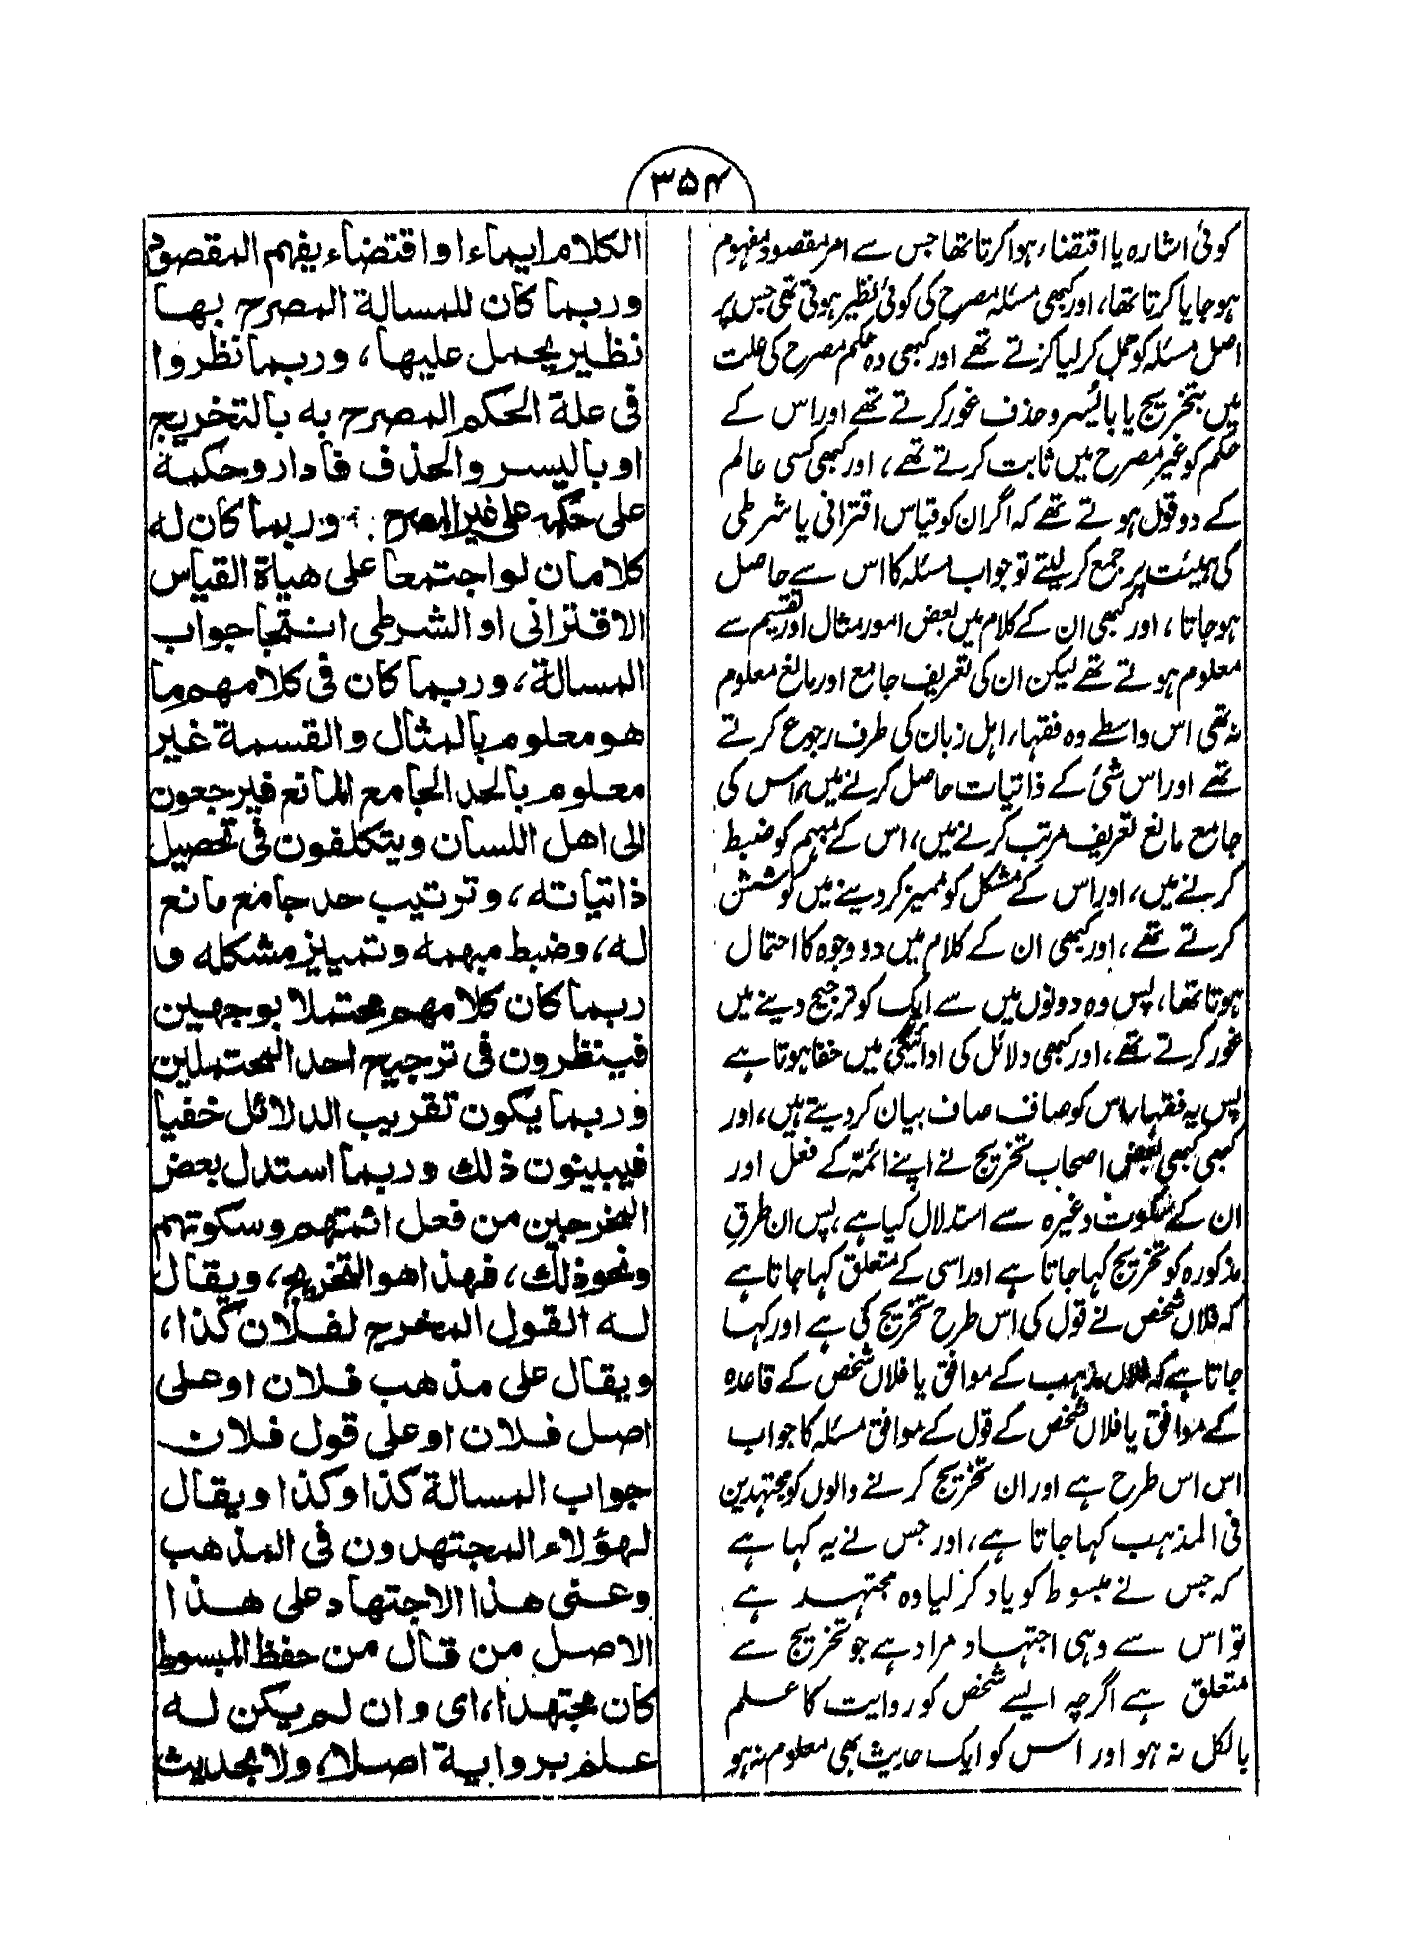 ۳۵۴
کوئی اشارہ یا اقتضاء ہوا کرتا تھا جس سے امر مقصود مفہوم
ہو جایا کرتا تھا، اور کبھی مسئلہ مصرح کی کوئی نظیر ہوتی تھی جس پر
اصل مسئلہ کو حمل کر لیا کرتے تھے اور کبھی وہ حکم مصرح کی علت
میں بتخریج یا بالیسر و حذف غور کرتے تھے اور اس کے
حکم کو غیر مصرح میں ثابت کرتے تھے، اور کبھی کسی عالم
کے دو قول ہوتے تھے کہ اگر ان کو قیاس اقترانی یا شرطی
کی ہیئت پر جمع کر لیتے تو جواب مسئلہ کا اس سے حاصل
ہو جاتا، اور کبھی ان کے کلام میں بعض امور مثال اور تقسیم سے
معلوم ہوتے تھے لیکن ان کی تعریف جامع اور مانع معلوم
نہ تھی اس واسطے وہ فقہاء اہل زبان کی طرف رجوع کرتے
تھے اور اس شئ کے ذاتیات حاصل کرنے میں، اس کی
جامع مانع تعریف مرتب کرنے میں، اس کے مبہم کو ضبط
کرنے میں، اور اس کے مشکل کو ممیز کر دینے میں کوشش
کرتے تھے، اور کبھی ان کے کلام میں دو وجوہ کا احتمال
ہوتا تھا، پس وہ دونوں میں سے ایک کو ترجیح دینے میں
غور کرتے تھے، اور کبھی دلائل کی ادائیگی میں خفا ہوتا ہے
پس یہ فقہاء اس کو صاف صاف بیان کر دیتے ہیں، اور
کبھی کبھی بعض اصحاب تخریج نے اپنے ائمہ کے فعل اور
ان کے سکوت وغیرہ سے استدلال کیا ہے، پس ان طرق
مذکورہ کو تخریج کہا جاتا ہے اور اسی کے متعلق کہا جاتا ہے
کہ فلاں شخص نے قول کی اس طرح تخریج کی ہے اور کہا
جاتا ہے کہ فلاں مذہب کے موافق یا فلاں شخص کے قاعدہ
کے موافق یا فلاں شخص کے قول کے موافق مسئلہ کا جواب
اس اس طرح ہے اور ان تخریج کرنے والوں کو مجتہدین
فی المذہب کہا جاتا ہے، اور جس نے یہ کہا ہے
کہ جس نے مبسوط کو یاد کر لیا وہ مجتہد ہے
تو اس سے وہی اجتہاد مراد ہے جو تخریج سے
متعلق ہے اگرچہ ایسے شخص کو روایت کا علم
بالکل نہ ہو اور اس کو ایک حدیث بھی معلوم نہ ہو
الکلام ایماء او اقتضاء یفہم المقصود
وربما کان للمسالة المصرح بها
نظیر یحمل علیها، وربما نظروا
فی علة الحکم المصرح به بالتخریج
او بالیسر والحذف فاداروحکمه
علی حکمه علی غیر المصرح. وربما کان له
کلامان لواجتمعا علی هیاة القیاس
الاقترانی او الشرطی انتجا جواب
المسالة، وربما کان فی کلامهم ما
هو معلوم بالمثال والقسمة غیر
معلوم بالحد الجامع المانع فیرجعون
الی اهل اللسان ویتکلفون فی تحصیل
ذاتیاته، وترتیب حد جامع مانع
له، وضبط مبهمه وتمییز مشکله و
ربما کان کلامهم محتملا بوجهین
فینظرون فی ترجیح احد المحتملین
وربما یکون تقریب الدلائل خفیا
فیبینون ذلك وربما استدل بعض
المخرجین من فعل ائمتهم وسکوتهم
ونحو ذلك، فهذا هو التخریج، ویقال
له القول المخرج لفلان کذا،
ویقال علی مذهب فلان او علی
اصل فلان او علی قول فلان
جواب المسالة کذا وکذا ویقال
لهؤلاء المجتهدون فی المذهب
وعنی هذا الاجتهاد علی هذا
الاصل من قال من حفظ المبسوط
کان مجتهدا، ای وان لم یکن له
علم بروایة اصلا، ولا بحدیث